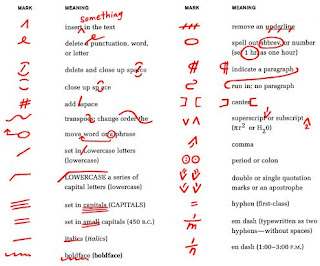 MARK MEANING
something
insert in the text
delete a punctuation, word,
or letter
delete and close up space
close up space
add a space
transpose; change order the
move word or a phrase
set in Lowercase letters
(lowercase)
LOWERCASE a series of
capital letters (lowercase)
set in capitals (CAPITALS)
set in small capitals (450 B.C.)
italics (italics)
boldface (boldface)
MARK MEANING
remove an underline
spell out abbrev. or number
(set 1 hr as one hour)
indicate a paragraph
run in; no paragraph
center
superscript or subscript
(πr² or H₂0)
comma
period or colon
double or single quotation
marks or an apostrophe
= hyphen (first-class)
1/m em dash (typewritten as two
hyphens—without spaces)
1/n en dash (1:00–3:00 P.M.)